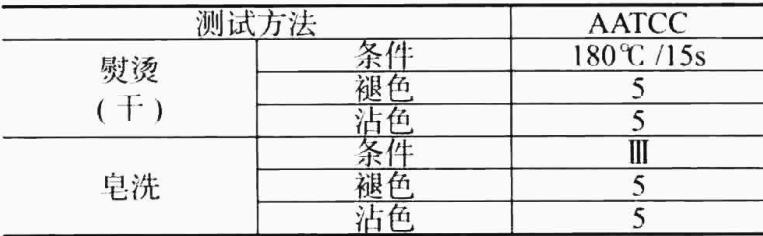 测试方法 AATCC
熨烫
(干) 条件 180℃/15s
褪色 5
沾色 5
皂洗 条件 Ⅲ
褪色 5
沾色 5